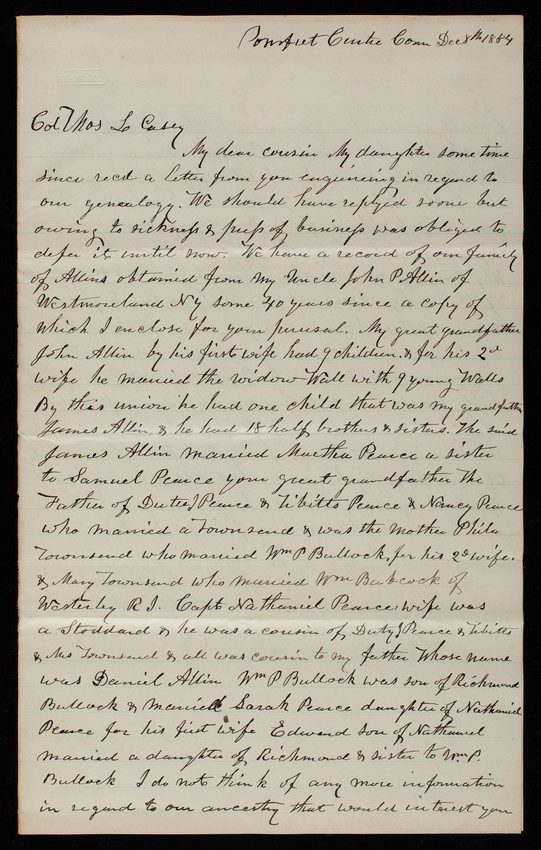 Pomfret Centre Conn Dec 8th 1884
Col Thos L Casey
My dear cousin My daughter some time
since recd a letter from you enquireing in regard to
our genealogy. We should have replyed soone but
owing to sickness & press of business was obliged to
defer it until now. We have a record of our family
of Allins obtained from my Uncle John P Allin of
Westmoreland N Y some 40 years since a copy of
which I enclose for your perusal. My great grandfather
John Allin by his first wife had 9 children. & for his 2d
wife he married the widow Wall with 9 young Walls
By this union he had one child that was my grandfather
James Allin, & he had 18 half brothers & sisters. The said
James Allin married Martha Pearce a sister
to Samuel Pearce your great grandfather the
Father of Dutee J Pearce & Tibitts Pearce & Nancy Pearce
who married a Townsend & was the Mother Phila
Townsend who married Wm P Bullock, for his 2d wife.
& Mary Townsend who married Wm Babcock of
Westerley R I. Capt Nathaniel Pearce wife was
a Stoddard & he was a cousin of Duty J Pearce & Tibitts
& Mrs Townsend & all was cousin to my father Whose name
was Daniel Allin Wm P Bullock was son of Richmond
Bullock & Married Sarah Pearce daughter of Nathaniel
Pearce for his first wife Edward son of Nathaniel
married a daughter of Richmond & sister to Wm P.
Bullock I do not think of any more information
in regard to our ancestry that would interest you